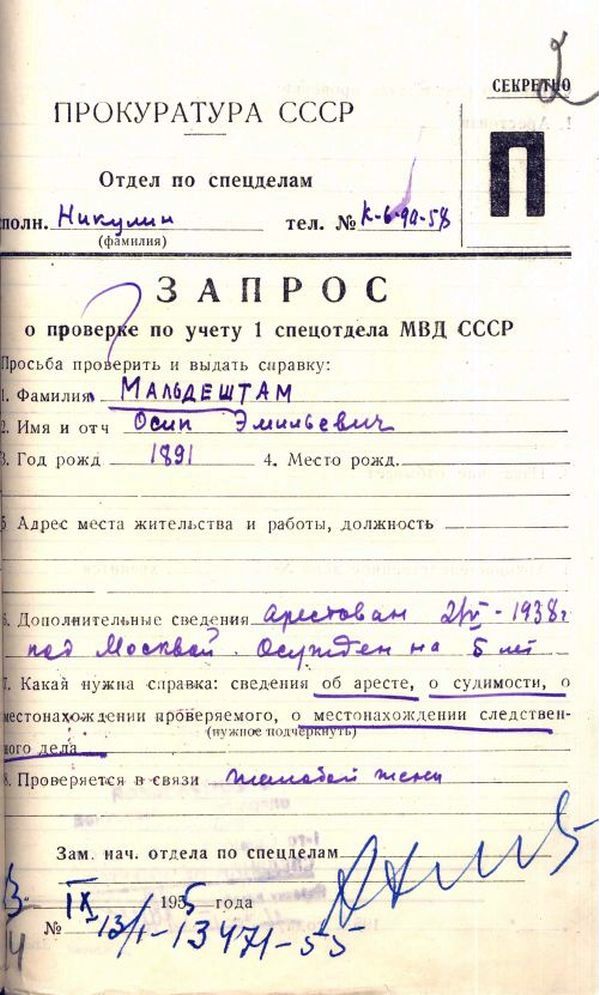 2
СЕКРЕТНО
ПРОКУРАТУРА СССР
П
Отдел по спецделам
полн. Никулин тел. № К-6-90-58
(фамилия)
ЗАПРОС
о проверке по учету 1 спецотдела МВД СССР
Просьба проверить и выдать справку:
1. Фамилия МАЛЬДЕШТАМ
2. Имя и отч Осип Эмильевич
3. Год рожд 1891 4. Место рожд.
5 Адрес места жительства и работы, должность
6. Дополнительные сведения арестован 2/V-1938г
под Москвой. Осужден на 5 лет
7. Какая нужна справка: сведения об аресте, о судимости, о
местонахождении проверяемого, о местонахождении следствен-
(нужное подчеркнуть)
ного дела
8. Проверяется в связи жалобой жены
Зам. нач. отдела по спецделам
IX 1955 года
№ 13/1-13471-55